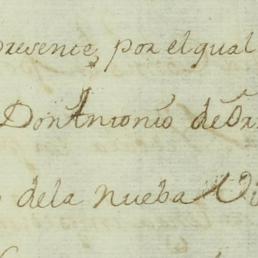 presente, por el qual
Don Antonio de
dela nueba